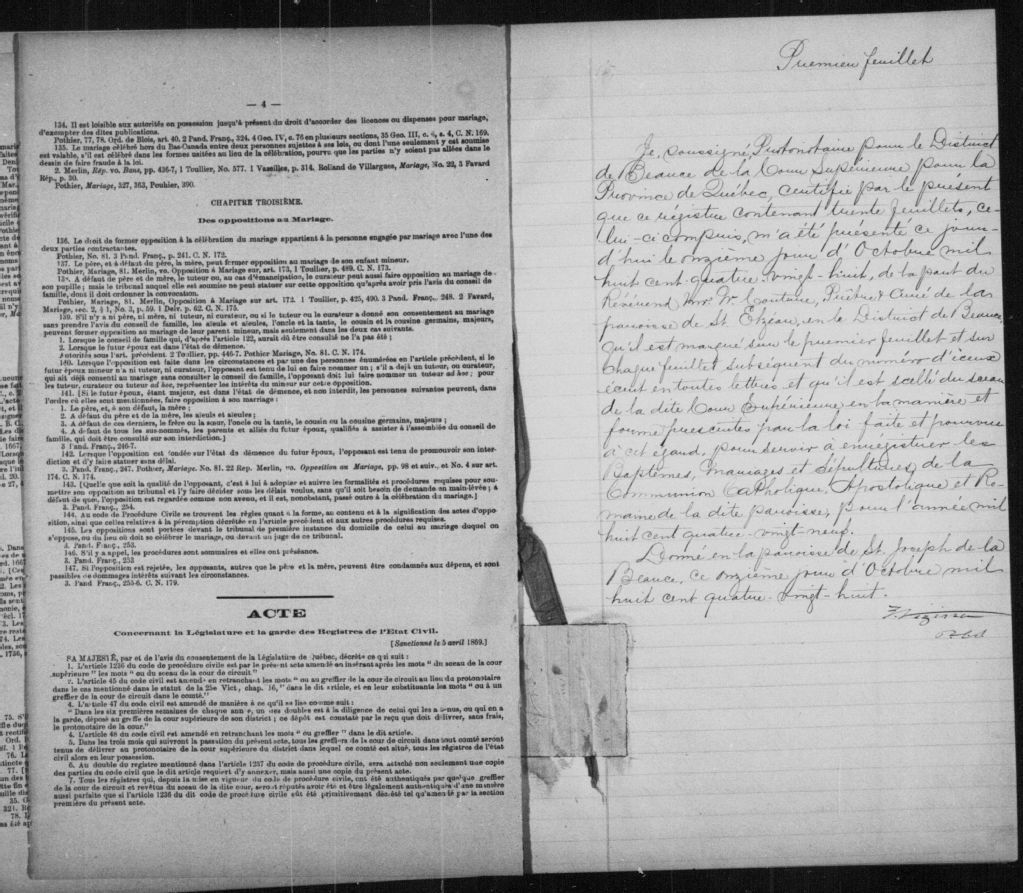 — 4 —
134. Il est loisible aux autorités en possession jusqu'à présent du droit d'accorder des licences ou dispenses pour mariage,
d'exempter des dites publications.
Pothier, 77, 78. Ord. de Blois, art. 40. 2 Pand. Franç., 324. 4 Geo. IV, c. 76 en plusieurs sections, 35 Geo. III, c. 4, s. 4, C. N. 169.
135. Le mariage célébré hors du Bas-Canada entre deux personnes sujettes à ses lois, ou dont l'une seulement y est soumise
est valable, s'il est célébré dans les formes usitées au lieu de la célébration, pourvu que les parties n'y soient pas allées dans le
dessin de faire fraude à la loi.
2. Merlin, Rép. vo. Bans, pp. 436-7, 1 Toullier, No. 577. 1 Vazeilles, p. 314. Rolland de Villargues, Mariage, No. 22, 3 Favard
Rép., p. 30.
Pothier, Mariage, 327, 363, Pouhier, 390.
CHAPITRE TROISIÈME.
Des oppositions au Mariage.
136. Le droit de former opposition à la célébration du mariage appartient à la personne engagée par mariage avec l'une des
deux parties contractantes.
Pothier, No. 81. 3 Pand. Franç., p. 241. C. N. 172.
137. Le père, et à défaut du père, la mère, peut former opposition au mariage de son enfant mineur.
Pothier, Mariage, 81. Merlin, vo. Opposition à Mariage sur, art. 173, 1 Toullier, p. 489. C. N. 173.
138. A défaut de père et de mère, le tuteur ou, au cas d'émancipation, le curateur peut aussi faire opposition au mariage de
son pupille; mais le tribunal auquel elle est soumise ne peut statuer sur cette opposition qu'après avoir pris l'avis du conseil de
famille, dont il doit ordonner la convocation.
Pothier, Mariage, 81. Merlin, Opposition à Mariage sur art. 172. 1 Toullier, p. 425, 490. 3 Pand. Franç., 248. 2 Favard,
Mariage, sec. 2, § 1, No. 3, p. 59. 1 Delv. p. 62. C. N. 175.
139. S'il n'y a ni père, ni mère, ni tuteur, ni curateur, ou si le tuteur ou le curateur a donné son consentement au mariage
sans prendre l'avis du conseil de famille, les aïeuls et aïeules, l'oncle et la tante, le cousin et la cousine germains, majeurs,
peuvent former opposition au mariage de leur parent mineur, mais seulement dans les deux cas suivants.
1. Lorsque le conseil de famille qui, d'après l'article 122, aurait dû être consulté ne l'a pas été;
2. Lorsque le futur époux est dans l'état de démence.
Autorités sous l'art. précédent. 2 Toullier, pp. 446-7. Pothier Mariage, No. 81. C. N. 174.
140. Lorsque l'opposition est faite dans les circonstances et par une des personnes énumérées en l'article précédent, si le
futur époux mineur n'a ni tuteur, ni curateur, l'opposant est tenu de lui en faire nommer un; s'il a déjà un tuteur, ou curateur,
qui ait déjà consenti au mariage sans consulter le conseil de famille, l'opposant doit lui faire nommer un tuteur ad hoc; pour
les tuteur, curateur ou tuteur ad hoc, représenter les intérêts du mineur sur cette opposition.
141. [Si le futur époux, étant majeur, est dans l'état de démence, et non interdit, les personnes suivantes peuvent, dans
l'ordre où elles sont mentionnées, faire opposition à son mariage:
1. Le père, et, à son défaut, la mère;
2. A défaut du père et de la mère, les aïeuls et aïeules;
3. A défaut de ces derniers, le frère ou la sœur, l'oncle ou la tante, le cousin ou la cousine germains, majeurs;
4. A défaut de tous les sus-nommés, les parents et alliés du futur époux, qualifiés à assister à l'assemblée du conseil de
famille, qui doit être consulté sur son interdiction.]
3 Pand. Franç., 246-7.
142. Lorsque l'opposition est fondée sur l'état de démence du futur époux, l'opposant est tenu de promouvoir son inter-
diction et d'y faire statuer sans délai.
3. Pand. Franç., 247. Pothier, Mariage. No. 81. 22 Rep. Merlin, vo. Opposition au Mariage, pp. 98 et suiv., et No. 4 sur art.
174. C. N. 174.
143. [Quelle que soit la qualité de l'opposant, c'est à lui à adopter et suivre les formalités et procédures requises pour sou-
mettre son opposition au tribunal et l'y faire décider sous les délais voulus, sans qu'il soit besoin de demande en main-levée; à
défaut de quoi, l'opposition est regardée comme non avenu, et il est, nonobstant, passé outre à la célébration du mariage.]
3. Pand. Franç., 254.
144. Au code de Procédure Civile se trouvent les règles quant à la forme, au contenu et à la signification des actes d'oppo-
sition, ainsi que celles relatives à la péremption décrétée en l'article précédent et aux autres procédures requises.
145. Les oppositions sont portées devant le tribunal de première instance du domicile de celui au mariage duquel on
s'oppose, ou du lieu où doit se célébrer le mariage, ou devant un juge de ce tribunal.
3. Pand. Franç., 253.
146. S'il y a appel, les procédures sont sommaires et elles ont préséance.
3. Pand. Franç., 253
147. Si l'opposition est rejetée, les opposants, autres que le père et la mère, peuvent être condamnés aux dépens, et sont
passibles de dommages intérêts suivant les circonstances.
3. Pand Franç., 255-6. C. N. 179.
ACTE
Concernant la Législature et la garde des Registres de l'Etat Civil.
[Sanctionné le 5 avril 1869.]
SA MAJESTÉ, par et de l'avis du consentement de la Législature de Québec, décrète ce qui suit:
1. L'article 1236 du code de procédure civile est par le présent acte amendé en insérant après les mots " du sceau de la cour
supérieure " les mots " ou du sceau de la cour de circuit."
2. L'article 45 du code civil est amendé en retranchant les mots " ou au greffier de la cour de circuit au lieu du protonotaire
dans le cas mentionné dans le statut de la 25e Vict., chap. 16, " dans le dit article, et en leur substituants les mots " ou à un
greffier de la cour de circuit dans le comté."
4. L'article 47 du code civil est amendé de manière à ce qu'il se lise comme suit:
" Dans les six premières semaines de chaque année, un des doubles est à la diligence de celui qui les a tenus, ou qui en a
la garde, déposé au greffe de la cour supérieure de son district; ce dépôt est constaté par le reçu que doit délivrer, sans frais,
le protonotaire de la cour."
4. L'article 48 du code civil est amendé en retranchant les mots " ou greffier " dans le dit article.
5. Dans les trois mois qui suivront la passation du présent acte, tous les greffiers de la cour de circuit dans tout comté seront
tenus de délivrer au protonotaire de la cour supérieure du district dans lequel ce comté est situé, tous les régistres de l'état
civil alors en leur possession.
6. Au double du registre mentionné dans l'article 1237 du code de procédure civile, sera attaché non seulement une copie
des parties du code civil que le dit article requiert d'y annexer, mais aussi une copie du présent acte.
7. Tous les régistres qui, depuis la mise en vigueur du code de procédure civile, ont été authentiqués par quelque greffier
de la cour de circuit et revêtus du sceau de la dite cour, seront réputés avoir été et être légalement authentiqués d'une manière
aussi parfaite que si l'article 1236 du dit code de procédure civile eût été primitivement décrété tel qu'amendé par la section
première du présent acte.
Premier feuillet
Je, soussigné, Protonotaire pour le District
de Beauce de la Cour Supérieure pour la
Province de Québec, certifie par le présent
que ce régistre contenant trente feuillets, ce-
lui-ci compris, m'a été présenté ce jour-
d'hui le onzième jour d'Octobre mil
huit cent quatre-vingt-huit, de la part du
Révérend Mr. W. Couture, Prêtre & Curé de la
paroisse de St. Elzéar, en le District de Beauce
qu'il est marqué sur le premier feuillet et sur
chaque feuillet subséquent du numéro d'iceux
écrit en toutes lettres et qu'il est scellé du sceau
de la dite Cour Supérieure en la manière et
forme prescrites par la loi faite et pourvue
à cet égard, pour servir à enregistrer les
Baptêmes, Mariages et Sépultures de la
Communion Catholique, Apostolique et Ro-
maine de la dite paroisse, pour l'année mil
huit cent quatre-vingt-neuf.
Donné en la paroisse de St. Joseph de la
Beauce, ce onzième jour d'Octobre mil
huit cent quatre-vingt-huit.